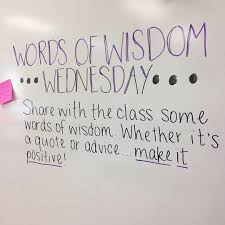 WORDS OF WISDOM
•••WEDNESDAY•••
Share with the class some
words of wisdom. Whether it's
a quote or advice... make it
positive!